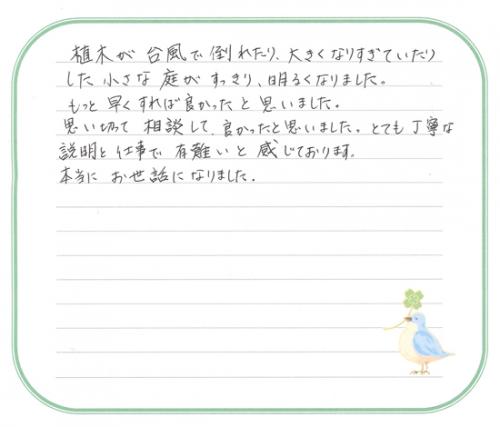 植木が台風で倒れたり、大きくなりすぎていたり
した小さな庭がすっきり、明るくなりました。
もっと早くすれば良かったと思いました。
思い切って相談して、良かったと思いました。とても丁寧な
説明と仕事で有難いと感じております。
本当にお世話になりました.